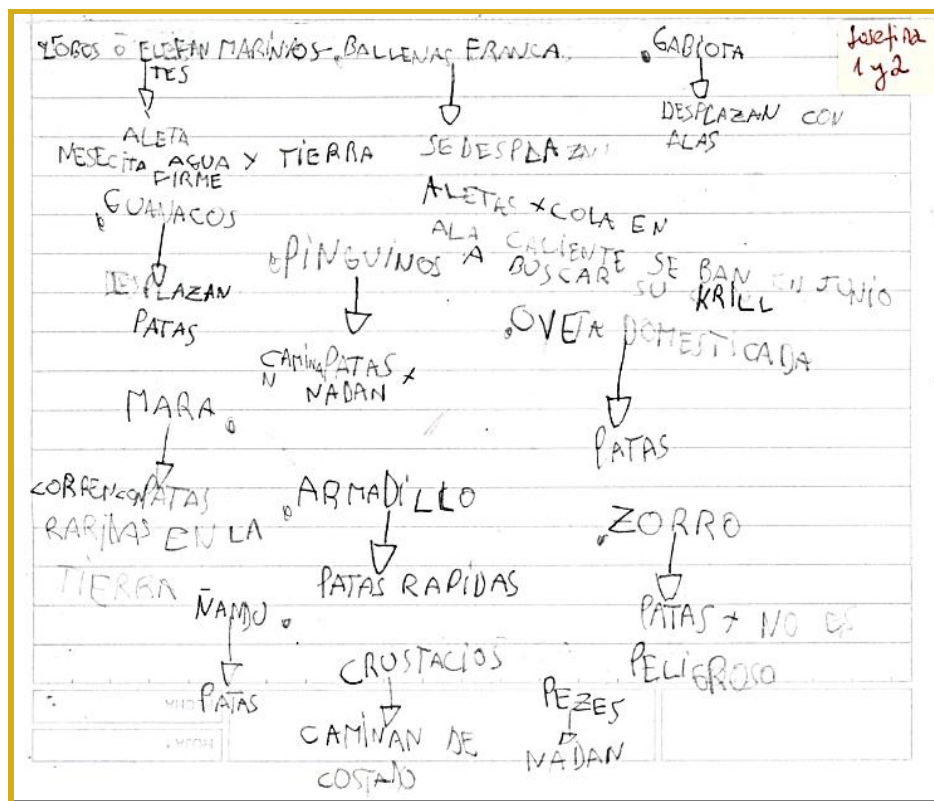 LOBOS Ó ELEFAN MARINIOS
TES
ALETA
NESECITA AGUA Y TIERRA
FIRME
.BALLENAS FRANCA.
SE DESPLAZAN
ALETAS + COLA EN
ALA CALIENTE SE BAN EN JUNIO
A BUSCAR SU KRILL
.GABIOTA
DESPLAZAN CON
ALAS
Josefina
1 y 2
.GUANACOS
DESPLAZAN
PATAS
.PINGUINOS
CAMINA PATAS +
N NADAN
.OVEJA DOMESTICADA
PATAS
MARA.
CORREN CON PATAS
RARIDAS EN LA
TIERRA
.ARMADILLO
PATAS RAPIDAS
.ZORRO
PATAS + NO ES
PELIGROSO
ÑANDU.
PATAS
CRUSTACIOS
CAMINAN DE
COSTADO
PEZES
NADAN